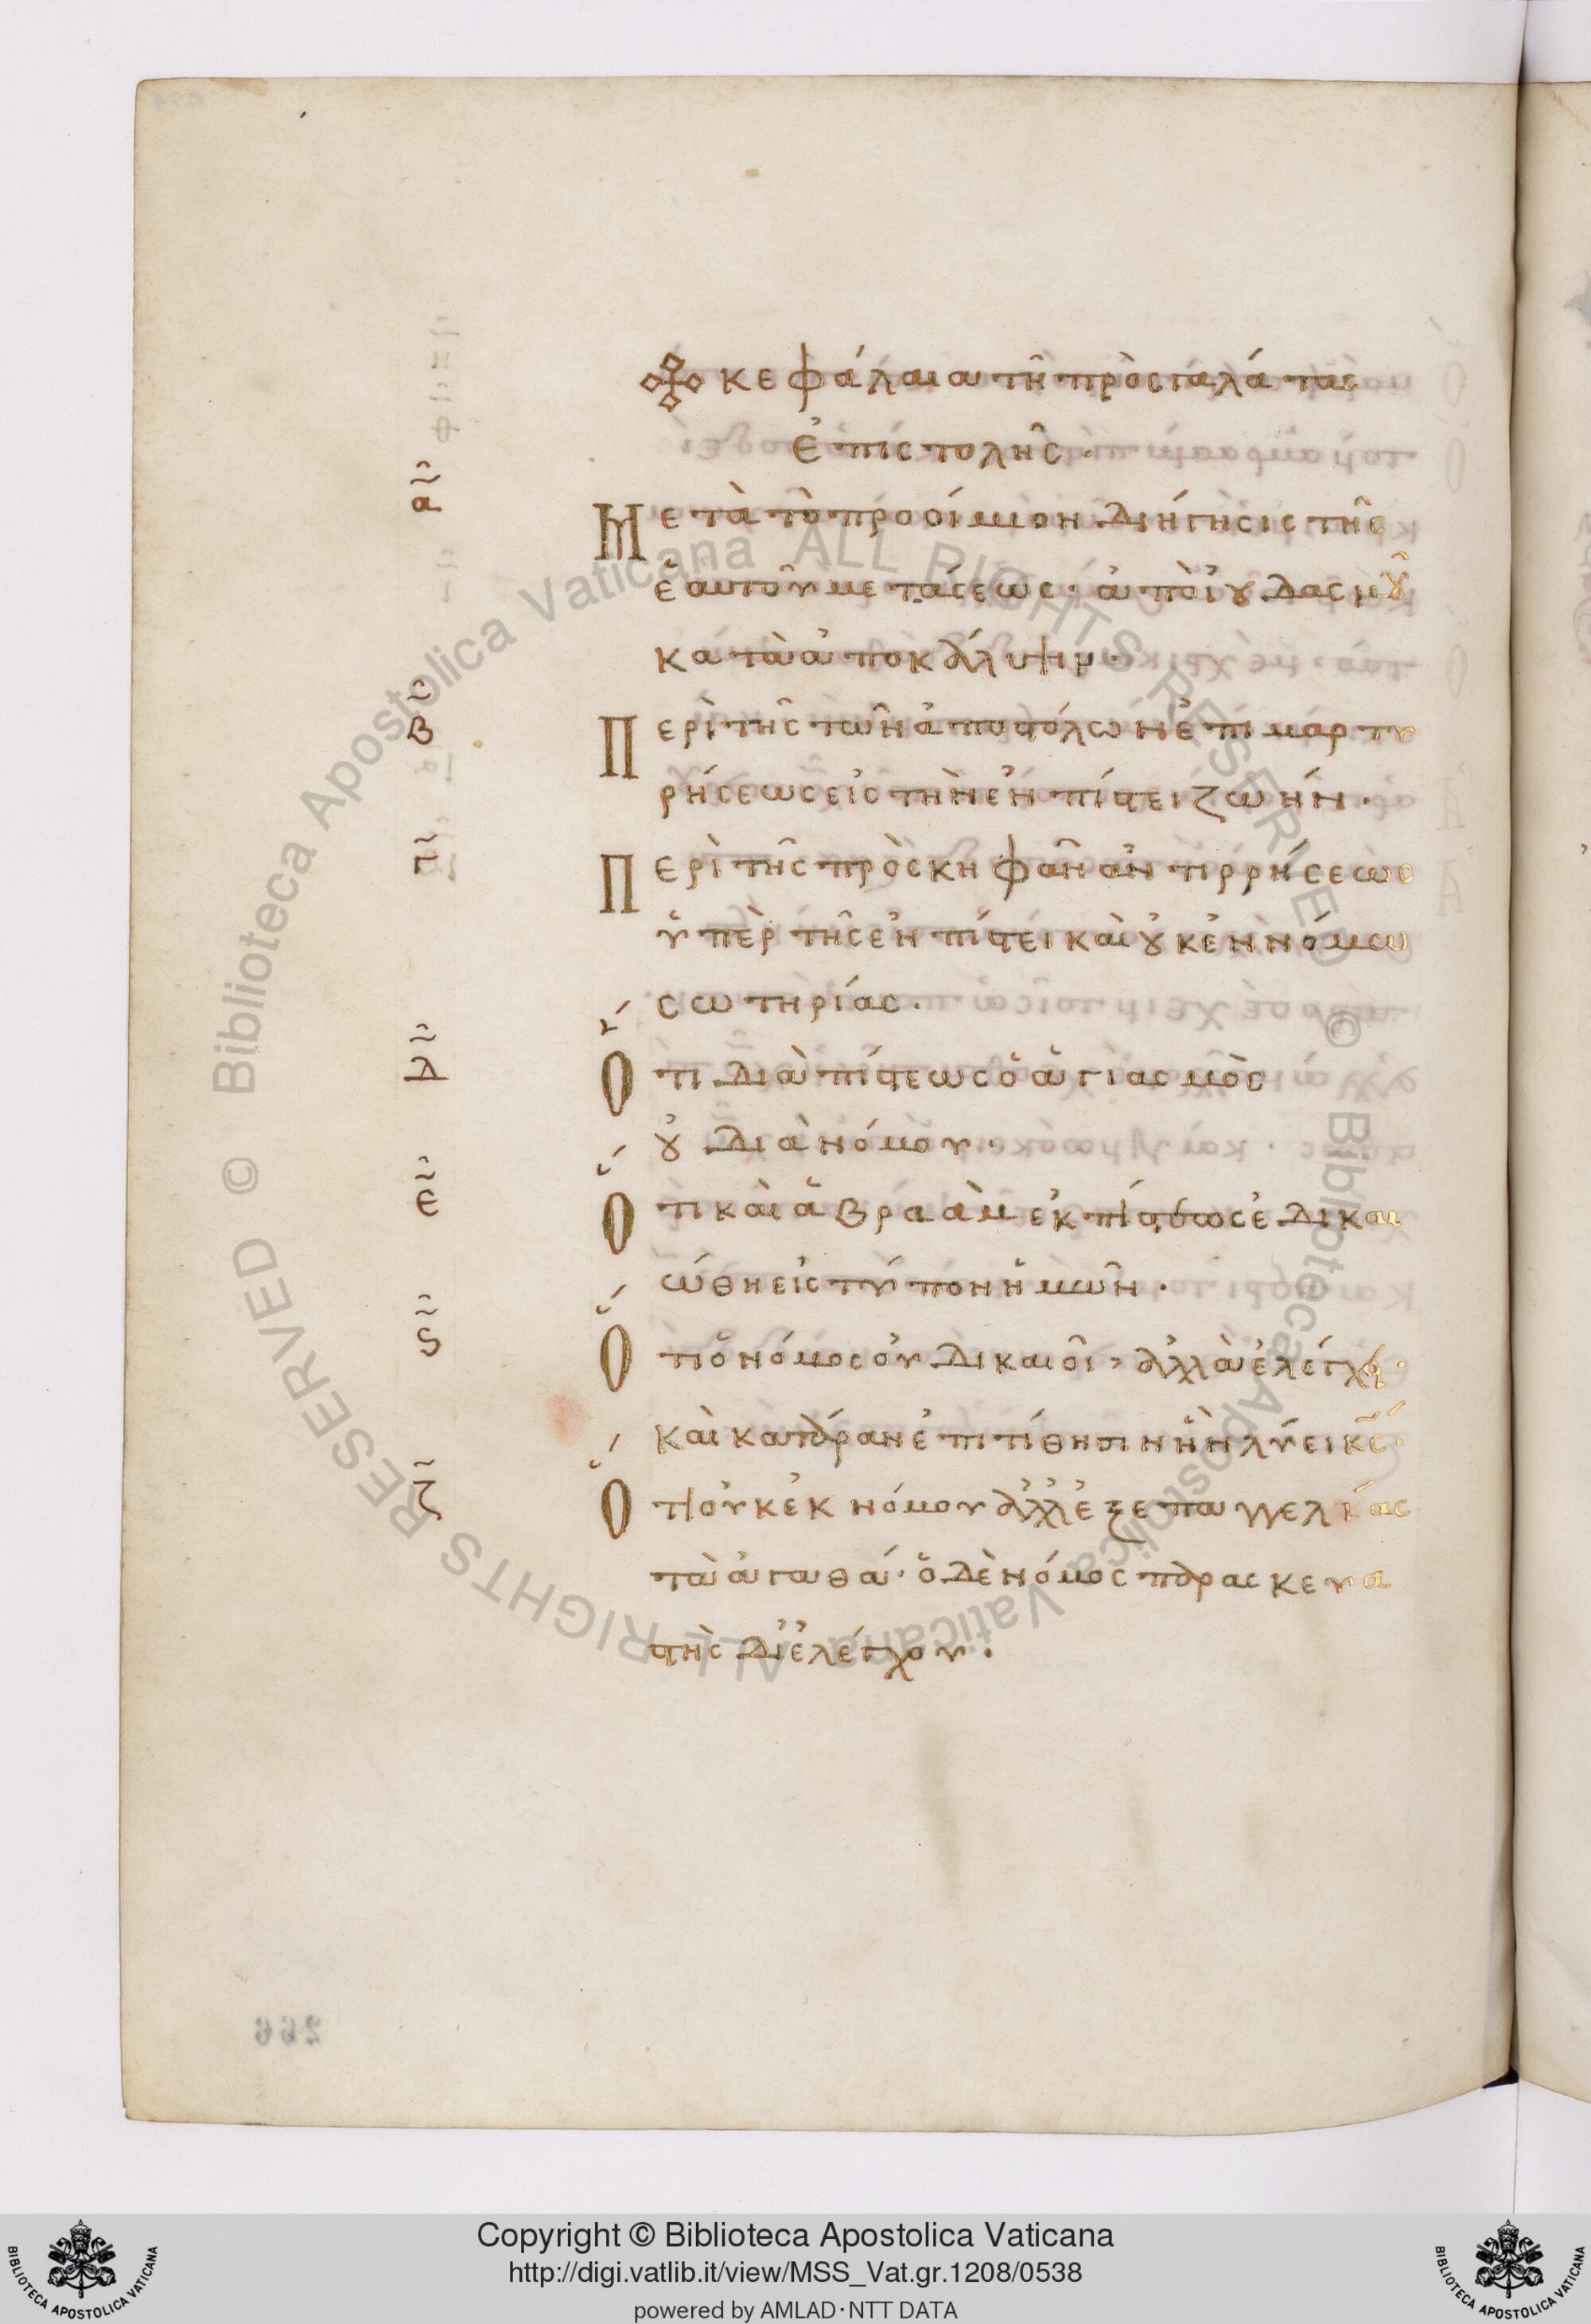 κεφάλαια τῆς πρὸς γαλάτας
ἐπιστολῆς.
α Μετὰ τὸ προοίμιον διήγησις τῆς
ἑαυτοῦ μεταςέσεως· ἀπὸ ἰουδαςμοῦ
κατὰ ἀποκάλυψιν.
β Περὶ τῆς τῶν ἀποστόλων ἐπιμαρτυ
ρήσεως εἰς τὴν ἐν πίστει ζωήν.
γ Περὶ τῆς πρὸς κηφᾶν ἀντιρρήσεως
ὑπὲρ τῆς ἐν πίστει καὶ οὐκ ἐν νόμω
σωτηρίας.
δ Ὅτι διὰ πίστεως ὁ ἁγιασμὸς
οὐ διὰ νόμου.
ε Ὅτι καὶ ἁβραὰμ ἐκ πίστεως ἐδικαι
ώθη εἰς τύπον ἡμῶν.
ς Ὅτι ὁ νόμος οὐ δικαιοῖ, ἀλλὰ ἐλέγχει·
καὶ κατάραν ἐπιτίθησιν ἣν λύει κς·
ζ Ὅτι οὐκ ἐκ νόμου ἀλλ' ἐξ ἐπαγγελίας
τὰ ἀγαθά· ὁ δὲ νόμος παρασκευα
στὴς δι' ἐλέγχου.
266
© Biblioteca Apostolica Vaticana ALL RIGHTS RESERVED
© Biblioteca Apostolica Vaticana ALL RIGHTS RESERVED
Copyright © Biblioteca Apostolica Vaticana
http://digi.vatlib.it/view/MSS_Vat.gr.1208/0538
powered by AMLAD·NTT DATA
BIBLIOTECA APOSTOLICA VATICANA
BIBLIOTECA APOSTOLICA VATICANA